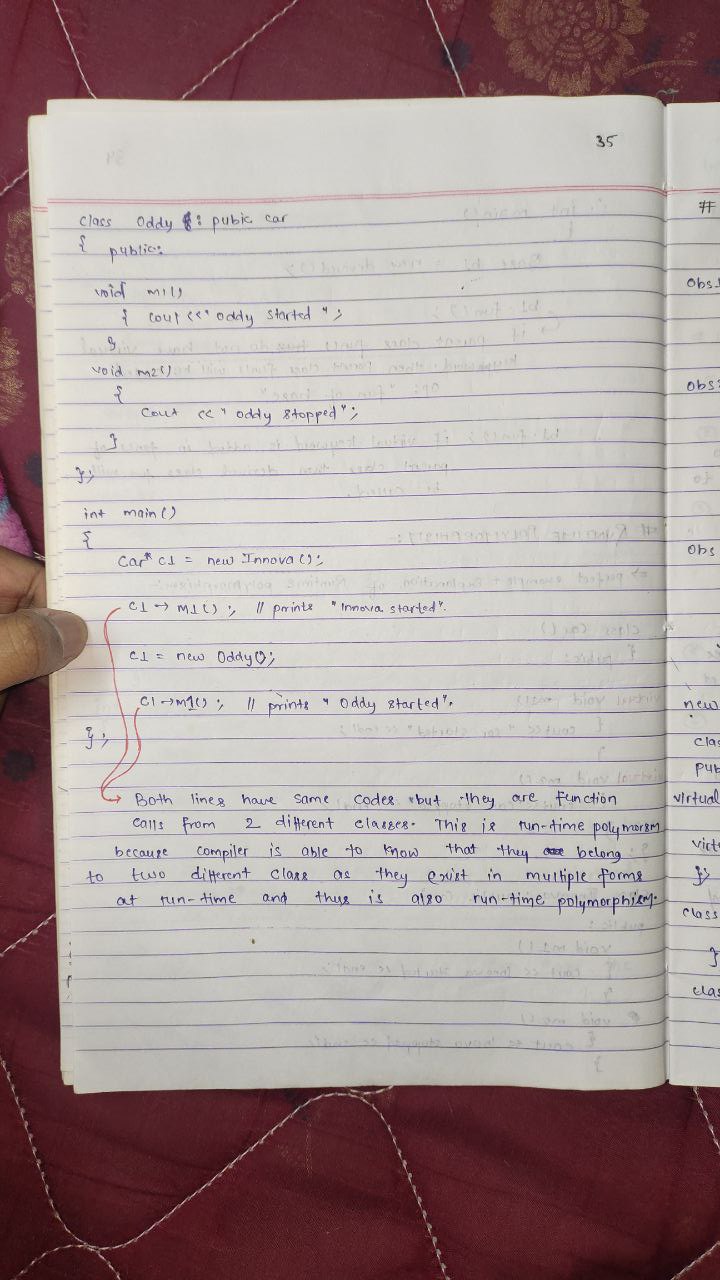 35
class Oddy : pubic car
{ public:
void m1()
{ cout << "Oddy started ";
}
void m2()
{
Cout << " Oddy stopped";
}
};
int main()
{
Car* c1 = new Innova();
c1 → m1(); // prints "Innova started".
c1 = new Oddy();
c1 → m1(); // prints " Oddy started".
};
Both lines have same codes but they are function
calls from 2 different classes. This is run-time polymorsm
because compiler is able to know that they belong
to two different class as they exist in multiple forms
at run-time and thus is also run-time polymorphism.
#
Obs
Obs
Obs
new
clas
pub
virtual
virtu
};
class
}
clas